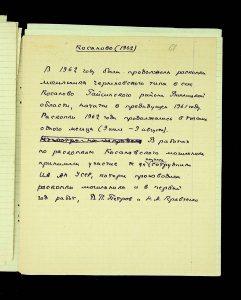 Косаново (1962)
61
В 1962 году были продолжены раскопки
могильника черняховского типа в селе
Косаново Гайсинского района Винницкой
области, начатые в предыдущем 1961 году.
Раскопки 1962 года продолжались в течение
одного месяца (3 июля – 3 август).
В работах
по раскопкам Косановского могильника
принимали участие научные сотрудники
ИА АН УССР, которые производили
раскопки могильника и в первый
год работ, В.П. Петров и Н.М. Кравченко